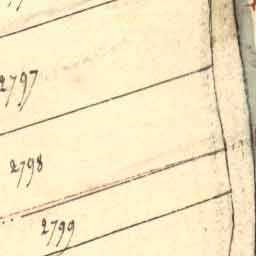 2797
2798
2799